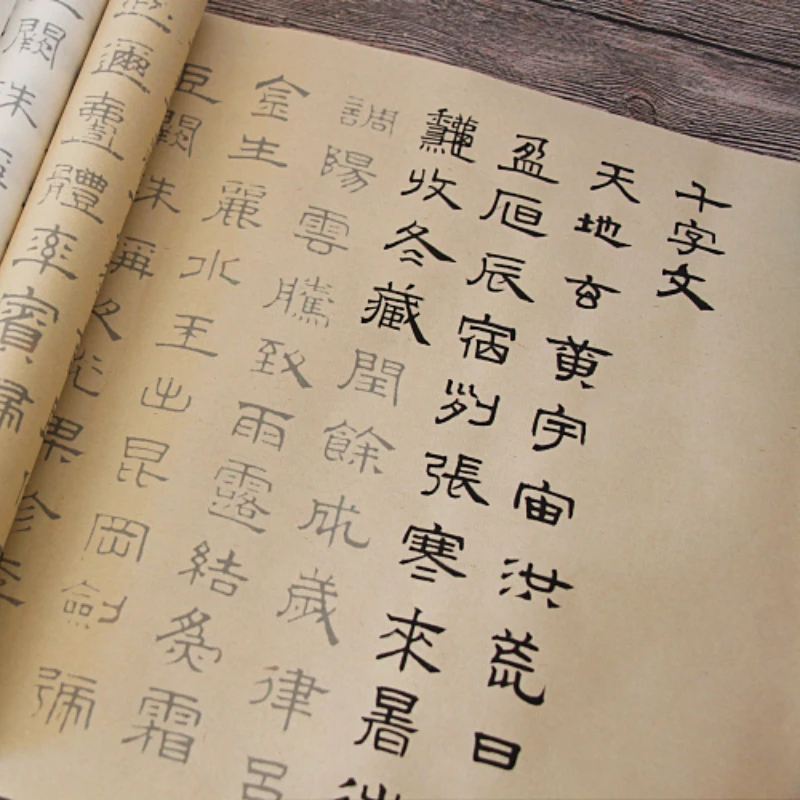 千字文
天地玄黃宇宙洪荒日
盈昃辰宿列張寒來暑往
龝收冬藏閏餘成歲律呂
調陽雲騰致雨露結為霜
金生麗水玉出昆岡劍號
巨闕珠稱夜光果珍李
邇壹體率賓歸
闕珠